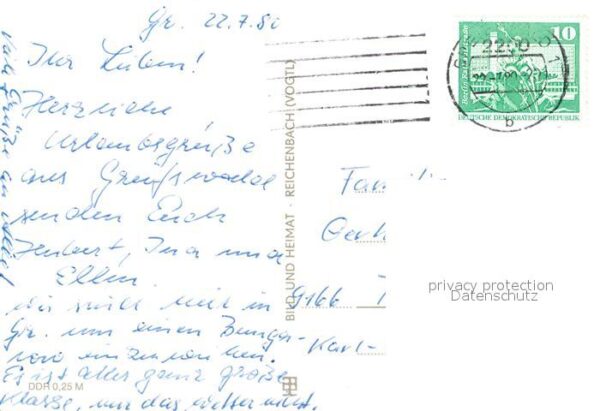 Gr. 22.7.80
Ihr Lieben!
Herzliche
Urlaubsgrüße
aus Greifswald
senden Euch
Herbert, Ina und
Ellen.
Wir sind mit in
Gr. um einen Bunga-
low
Es ist alles ganz große
Klasse, nur das Wetter nicht.
Viele Grüße an
DDR 0,25 M
BILD UND HEIMAT · REICHENBACH (VOGTL)
2200
10
DEUTSCHE DEMOKRATISCHE REPUBLIK
b
Fam
Gerh
9166
Karl-
privacy protection
Datenschutz